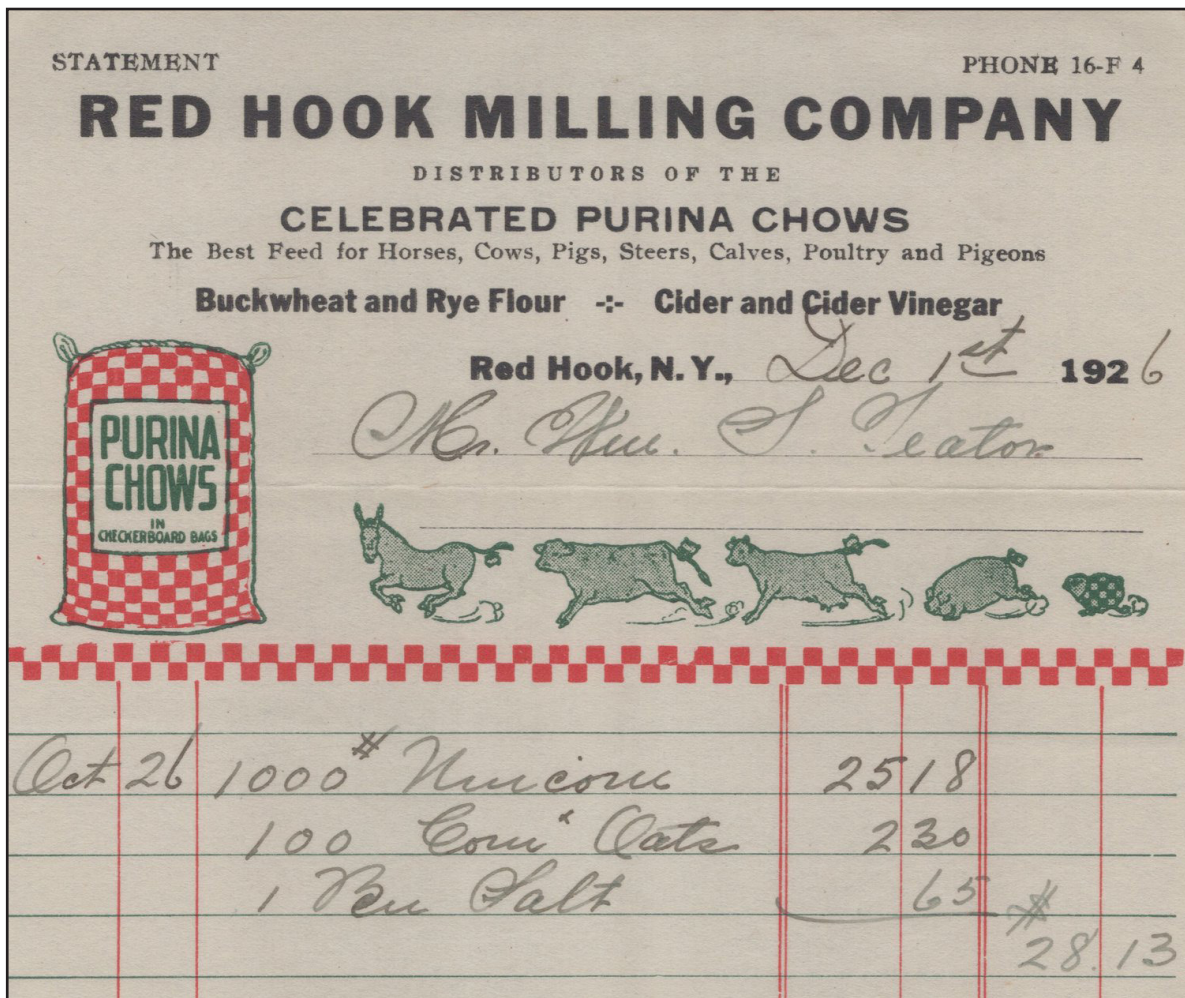 STATEMENT PHONE 16-F 4
RED HOOK MILLING COMPANY
DISTRIBUTORS OF THE
CELEBRATED PURINA CHOWS
The Best Feed for Horses, Cows, Pigs, Steers, Calves, Poultry and Pigeons
Buckwheat and Rye Flour -:- Cider and Cider Vinegar
Red Hook, N. Y., Dec 1st 1926
Mr. Wm. S. Teator
PURINA
CHOWS
IN
CHECKERBOARD BAGS
Oct 26 1000 # Unicorn 25 18
100 Corn & Oats 2 30
1 Salt 65
# 28.13